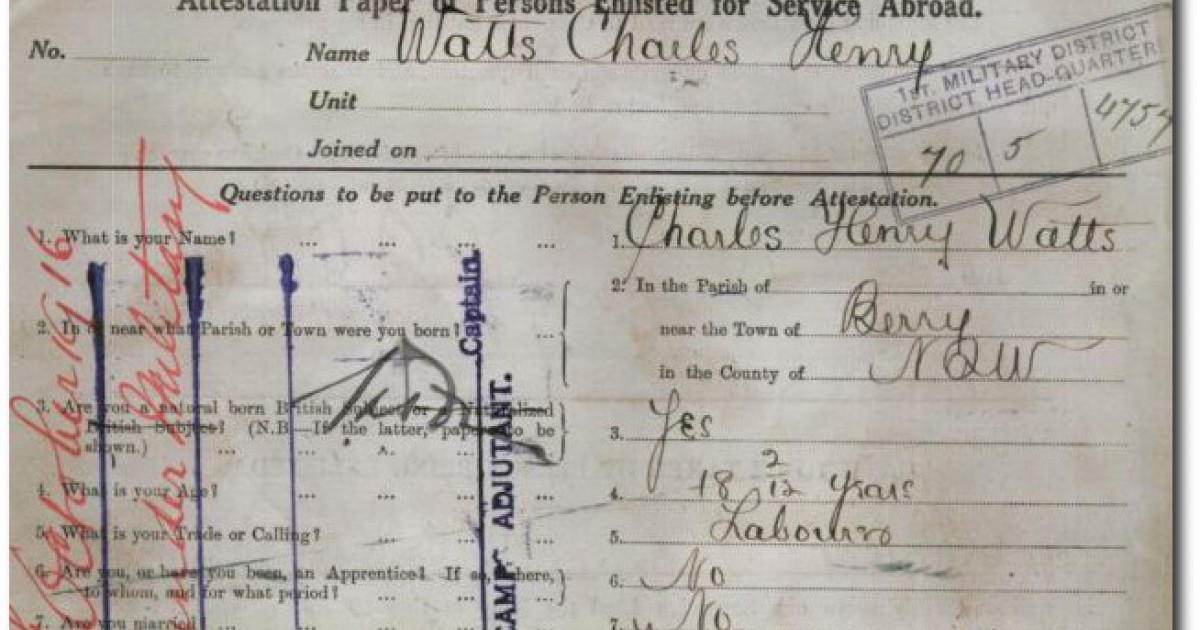 Attestation Paper of Persons Enlisted for Service Abroad.
No. Name Watts Charles Henry
Unit
Joined on
1st. MILITARY DISTRICT
DISTRICT HEAD-QUARTER
70 5 4754
Questions to be put to the Person Enlisting before Attestation.
1. What is your Name? ... ... ... ... 1. Charles Henry Watts
2. In or near what Parish or Town were you born? ...
2. In the Parish of in or
near the Town of Berry
in the County of NSW
3. Are you a natural born British Subject or a Naturalized
British Subject? (N.B.—If the latter, papers to be
shown.) ... ... ... ...
3. Yes
4. What is your Age? ... ... ... 4. 18 2/12 years
5. What is your Trade or Calling? ... ... ... 5. Labourer
6. Are you, or have you been, an Apprentice? If so, where,
to whom, and for what period? ... ... ...
6. No
7. Are you married ... ... ... 7. No
Captain.
CAMP ADJUTANT.
October 1916
under Military